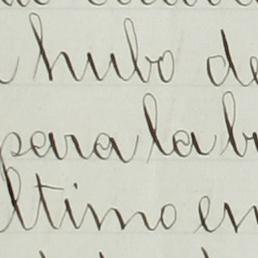 hubo de
para la b
ltimo en